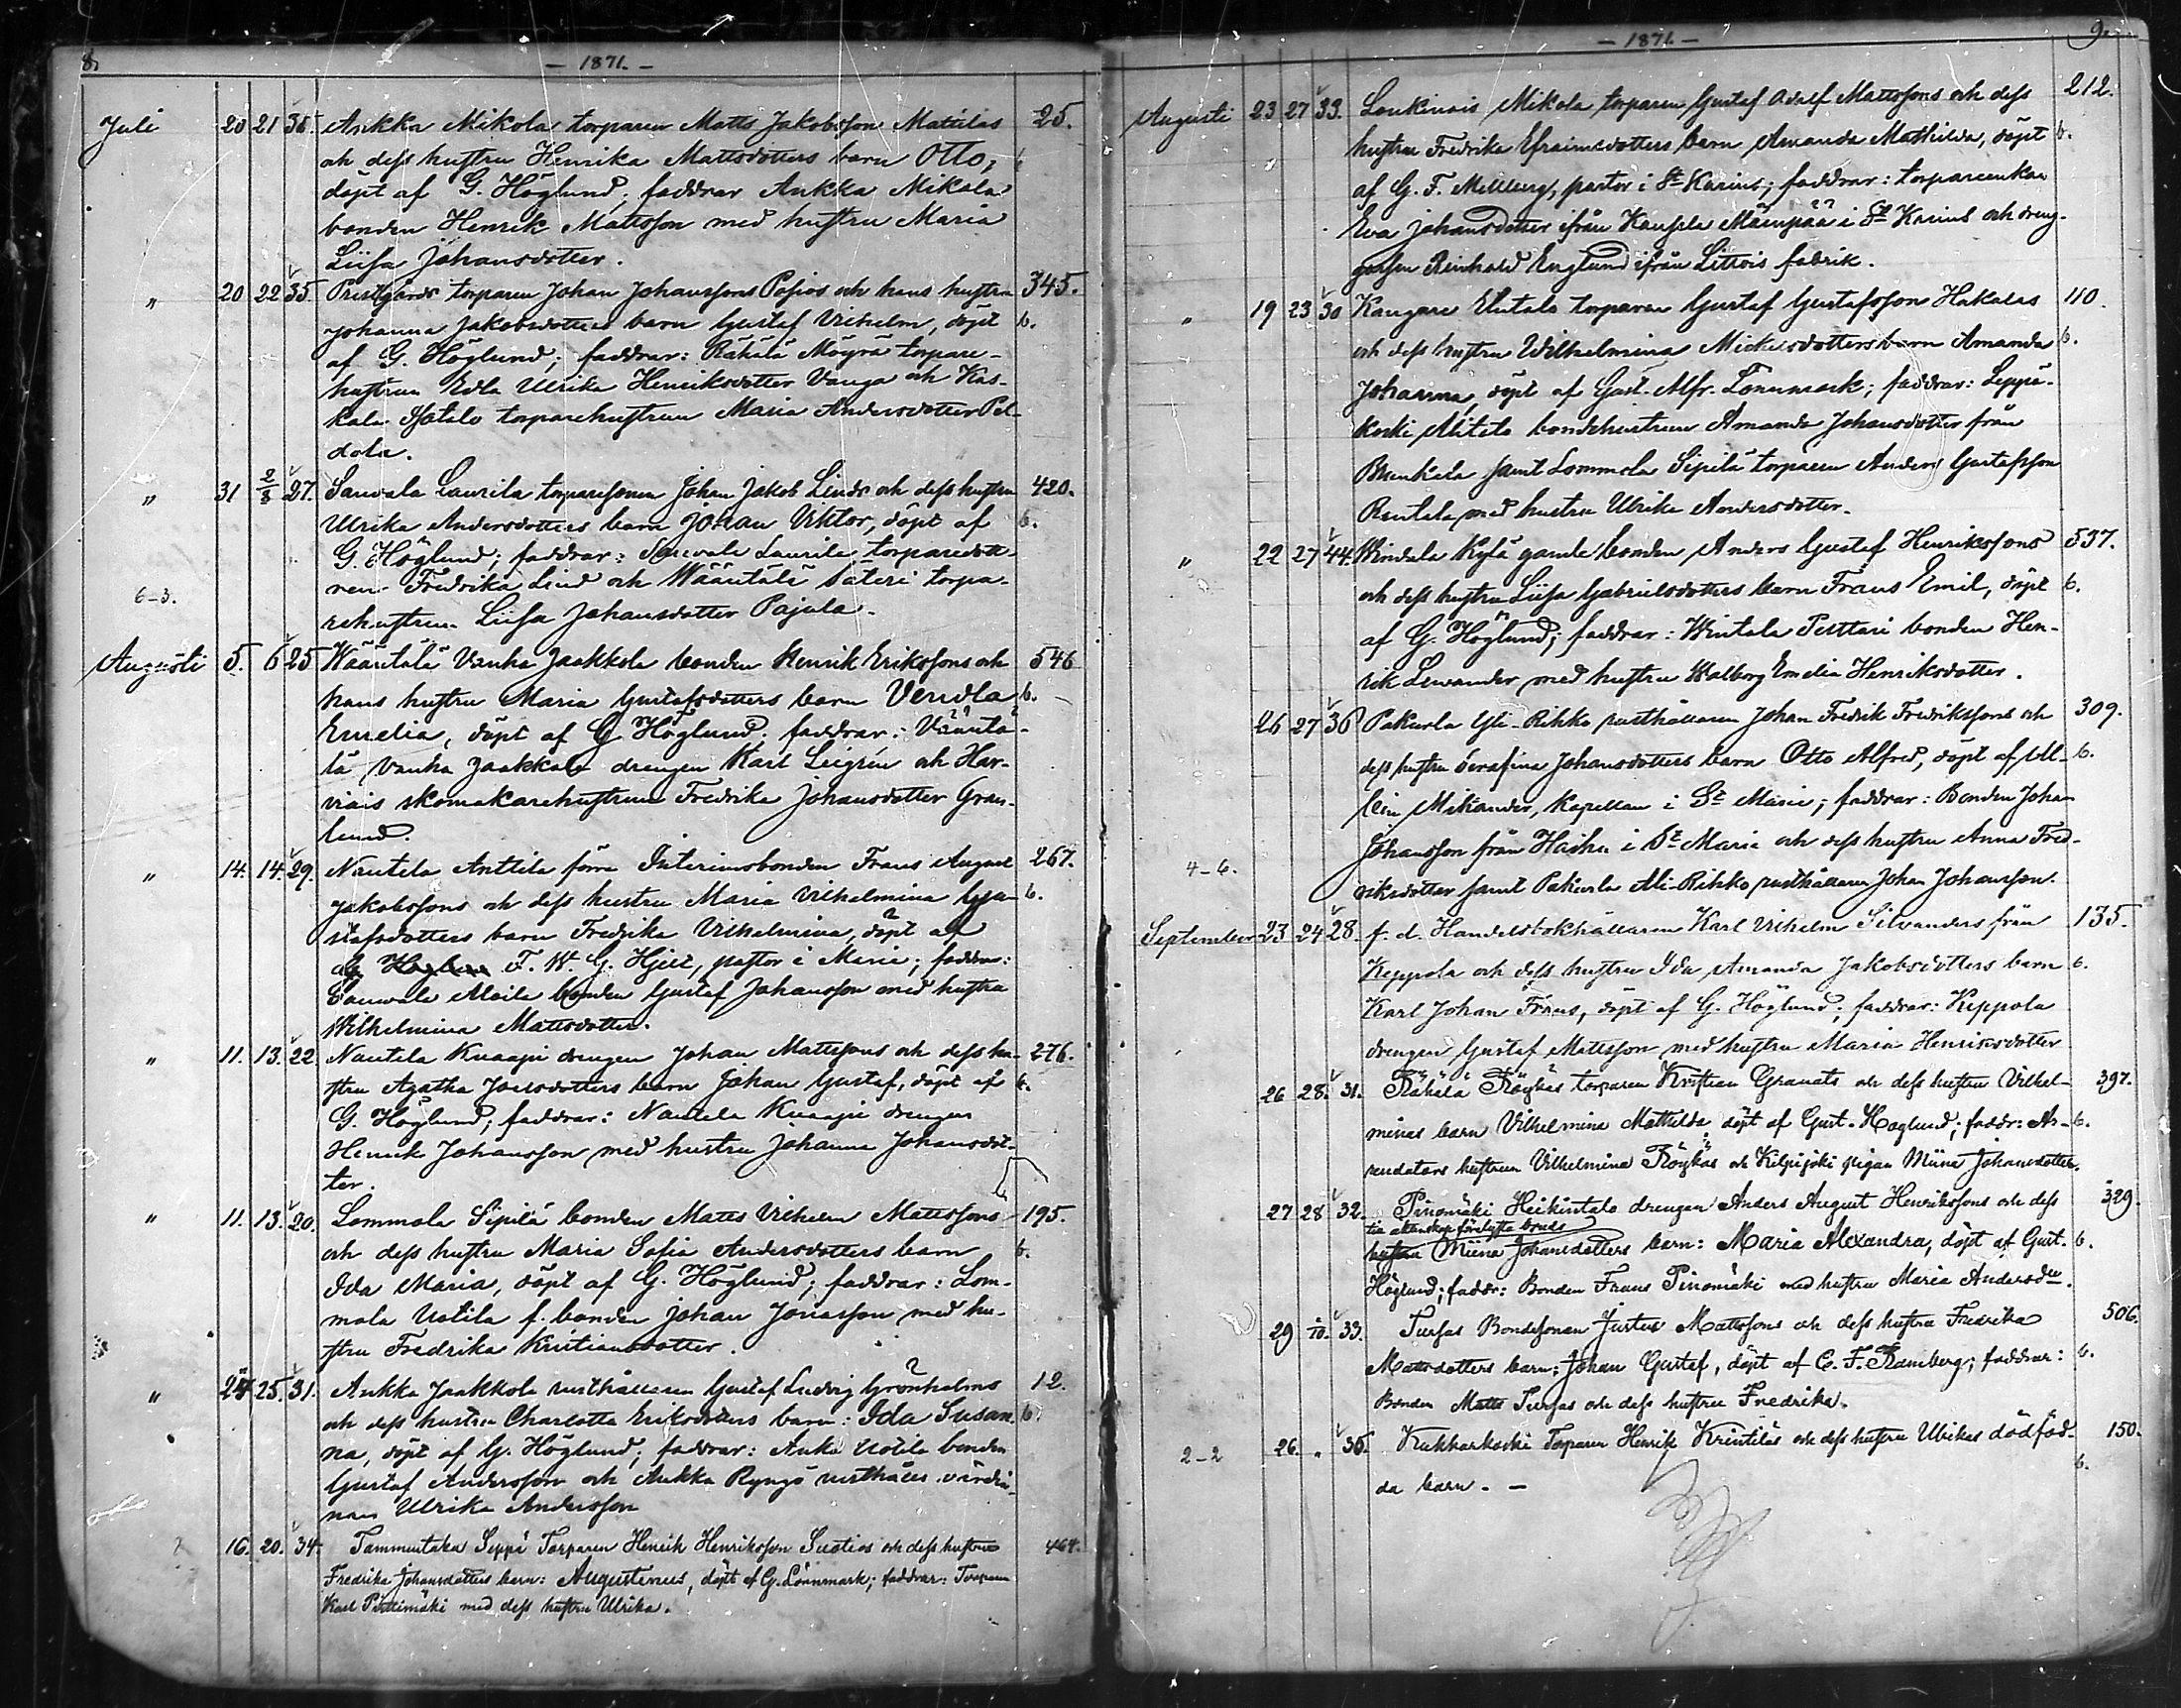 8.
— 1871. —
Juli 20 21 36. Aukka Mikola torparen Matts Jakobsson Mattilas 25.
och dess hustru Henrika Mattsdotters barn Otto, 6
döpt af G. Höglund; faddrar Aukka Mikola
bonden Henrik Mattsson med hustru Maria
Liisa Johansdotter.
„ 20 22 35. Prestgårds torparen Johan Johanssons Pasios och hans hustru 345.
Johanna Jakobsdotters barn Gustaf Vilhelm, döpt 6.
af G. Höglund; faddrar: Räkälä Mögrä torpare-
hustrun Edla Ulrika Henriksdotter Vanga och Kas-
kala Isotalo torparehustrun Maria Andersdotter Pel-
dola.
„ 31 2/8 27. Sauvala Laurila torparesonen Johan Jakob Linds och dess hustru 420.
Ulrika Andersdotters barn Johan Viktor, döpt af 6.
G. Höglund; faddrar: Sauvala Laurila torparedott-
ren Fredrika Lind och Wääntälä Säteri torpa-
6–3.
rehustrun Liisa Johansdotter Pajula.
Augusti 5. 6 25 Wääntälä Vanha Jaakkola bonden Henrik Erikssons och 546
hans hustru Maria Gustafsdotters barn Vendla 6.
Emelia, döpt af G. Höglund. faddrar: Väänta-
lä Vanha Jaakkola drengen Karl Leigrén och Har-
viais skomakarehustrun Fredrika Johansdotter Gran-
lund.
„ 14. 14. 29. Nautela Anttila förra Interimsbonden Frans August 267.
Jakobssons och dess hustru Maria Vilhelmina Gu- 6.
stafsdotters barn Fredrika Vilhelmina, döpt af
G. Höglund F. W. G. Hjelt, pastor i Marie; faddrar:
Sauvala Moila bonden Gustaf Johansson med hustru
Wilhelmina Mattsdotter.
„ 11. 13. 22. Nautela Knaapi drengen Johan Mattssons och dess hu- 276.
stru Agatha Joelsdotters barn Johan Gustaf, döpt af 6.
G. Höglund; faddrar: Nautela Knaapi drengen
Henrik Johansson med hustru Johanna Johansdot-
ter.
„ 11. 13. 20. Lommola Sipilä bonden Matts Vilhelm Mattssons 195.
och dess hustru Maria Sofia Andersdotters barn 6.
Ida Maria, döpt af G. Höglund; faddrar: Lom-
mola Uotila f. bonden Johan Jonasson med hu-
stru Fredrika Kristiansdotter.
„ 24 25. 31. Aukka Jaakkola rusthållaren Gustaf Ludvig Grönholms 12.
och dess hustru Charlotta Eriksdotters barn: Ida Susan- 6.
na, döpt af G. Höglund; faddrar: Auka Uotila bonden
Gustaf Andersson och Aukka Ryngö rusthålls värdin-
nan Ulrika Andersson
16. 20. 34. Tammentaka Seppä Torparen Henrik Henriksson Suotios och dess hustru 464.
Fredrika Johansdotters barn: Augustenus, döpt af G. Lönnmark; faddrar: Torparen
Karl Perttimäki med dess hustru Ulrika.
— 1871. —
9.
Augusti 23 27 33. Loukinais Mikola torparen Gustaf Adolf Mattssons och dess 212.
hustru Fredrika Efraimsdotters barn Amanda Mathilda, döpt 6.
af G. F. Mellberg, pastor i St Karins; faddrar: torpareenkan
Eva Johansdotter ifrån Kausela Mäenpää i St Karins och dreng-
gossen Reinhold Englund ifrån Littois fabrik.
„ 19 23 30 Kangare Elutalo torparen Gustaf Gustafsson Hakalas 110.
och dess hustru Wilhelmina Mickelsdotters barn Amanda 6.
Johanna, döpt af Gust. Alfr. Lönnmark; faddrar: Leppä-
koski bondehustrun Amanda Johansdotter från
samt Lommola Sipilä torparen Anders Gustafsson
Rantala med hustru Ulrika Andersdotter.
„ 22 27 44. Windala Kylä gamle bonden Anders Gustaf Henrikssons 537.
och dess hustru Liisa Gabrielsdotters barn Frans Emil, döpt 6.
af G. Höglund; faddrar: Wintala Perttari bonden Hen-
rik Lewander med hustru Walborg Emelia Henriksdotter.
26 27 36 Pakurla Yli-Rihko rusthållaren Johan Fredrik Fredrikssons och 309.
dess hustru Serafina Johansdotters barn Otto Alfred, döpt af Al- 6.
bin Mikander, Kapellan i St Marie; faddrar: Bonden Johan
Johansson från Haihu i St Marie och dess hustru Anna Fred-
4–6.
riksdotter samt Pakurla Ali-Rihko rusthållaren Johan Johansson.
September 23 24 28. f. d. Handelsbokhållaren Karl Vilhelm Silvanders från 135.
Keppola och dess hustru Ida Amanda Jakobsdotters barn 6.
Karl Johan Frans, döpt af G. Höglund; faddrar: Keppola
drengen Gustaf Mattsson med hustru Maria Henriksdotter
26 28. 31. Räkälä Röykäs torparen Kristian Granats och dess hustru Vilhel- 397.
minas barn Vilhelmina Mathilda, döpt af Gust. Höglund; faddr: Ar- 6.
rendators hustrun Vilhelmina Röykäs och Kilpijoki pigan Miina Johansdotter.
27 28 32. Pinomäki Heikintalo drengen Anders August Henrikssons och dess 329.
till äktenskap förlofta brud
hustru Miina Johansdotters barn: Maria Alexandra, döpt af Gust. 6.
Höglund; faddr: Bonden Frans Pinomäki med hustru Maria Andersdr.
29 1/10. 33. Tursas Bondesonen Justus Mattssons och dess hustru Fredrika 506.
Mattsdotters barn: Johan Gustaf, döpt af C. F. Ramberg; faddrar: 6.
Bonden Matts Tursas och dess hustru Fredrika.
2–2
26. „ 36. Kukkarkoski Torparen Henrik Krintiläs och dess hustru Ulrikas dödföd- 150.
da barn. — 6.